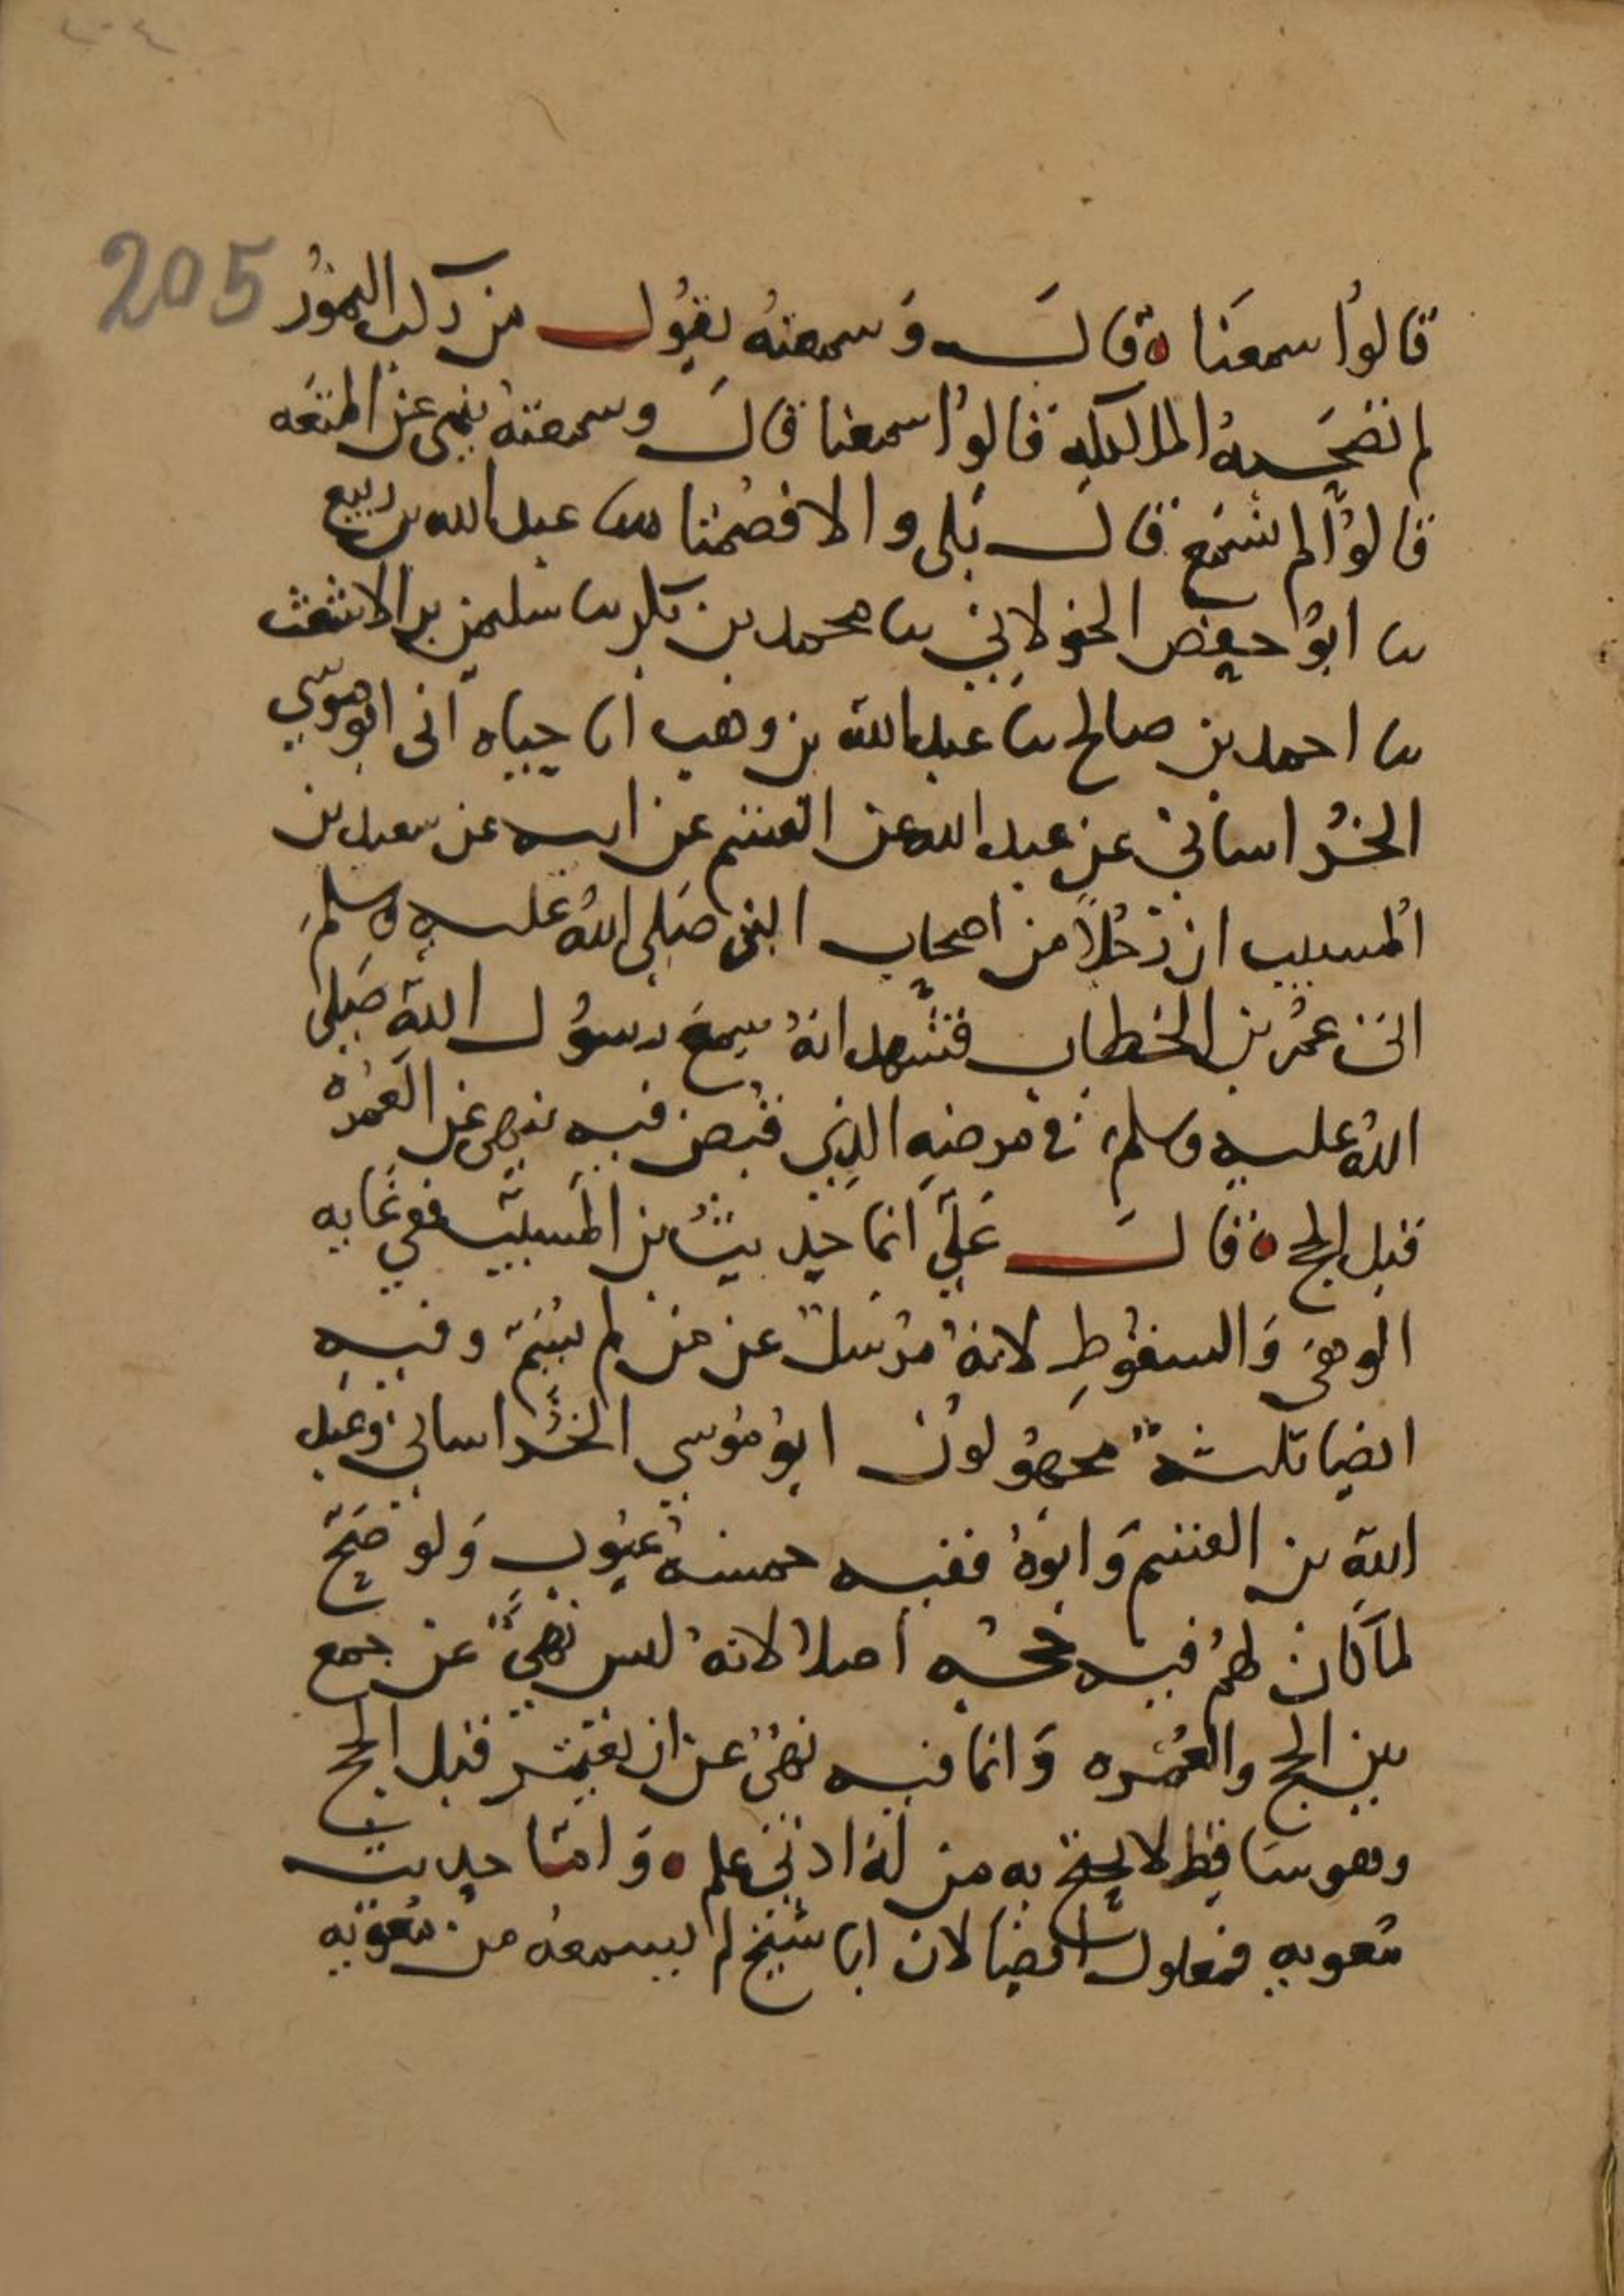 ٢٠٤
205
قالوا سمعنا ه قال وسمعته يقول من ركب النمور
لم تصحبه الملائكه قالوا سمعنا قال وسمعته ينهى عن المتعه
قالوا لم نسمع قال بلى والا فصمتا نا عبد الله بن ربيع
نا ابو حفص الخولاني نا محمد بن بكر نا سليمن بن الاشعث
نا احمد بن صالح نا عبد الله بن وهب انا حياه اني ابو موسي
الخراساني عن عبد الله عن القسم عن ابيه عن سعيد بن
المسيب ان رجلا من اصحاب النبي صلى الله عليه وسلم
اتى عمر بن الخطاب فشهد انه سمع رسول الله صلى
الله عليه وسلم في مرضه الذي قبض فيه ينهى عن العمره
قبل الحج ه قال علي انما حديث بن المسيب ففي غايه
الوهي والسقوط لانه مرسل عن من لم يسم وفيه
ايضا ثلثة مجهولون ابو موسي الخراساني وعبد
الله بن القسم وابوه ففيه خمسة عيوب ولو صح
لما كان لهم فيه حجه اصلا لانه ليس نهي عن جمع
بين الحج والعمره وانما فيه نهي عن ان يعتمر قبل الحج
وهو ساقط لا يحتج به من له ادنى علم ه واما حديث
معويه فمعلول ايضا لان ابا شيخ لم يسمعه من معويه